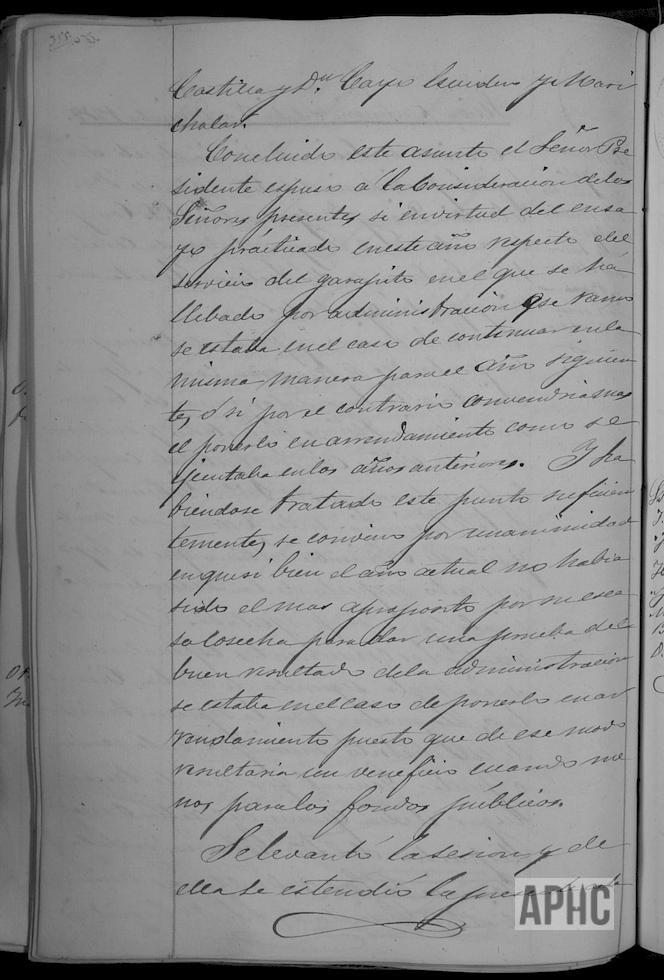 Castilla y D.n Cayo Escudero y Mari
chalar.
Concluido este asunto el Señor Pre
sidente espuso á la Consideracion de los
Señores presentes si en virtud del ensa
yo prácticado en este año respecto del
servicio del garapito en el que se há
llebado por administracion se
se estaba en el caso de continuar en la
misma manera para el año siguien
te, ó si por el contrario convendria mas
el ponerlo en arrendamiento como se
ejecutaba en los años anteriores. Y ha
biendose tratado este punto suficien
temente, se convino por unanimidad
en que si bien el año actual no habia
sido el mas apropósito por su esca
sa cosecha para dar una prueba del
buen resultado de la administracion
se estaba en el caso de ponerlo en ar
rendamiento puesto que de ese modo
resultaria un veneficio cuando me
nos para los fondos públicos.
Se levantó la sesion y de
ella se estendió la presente acta
APHC